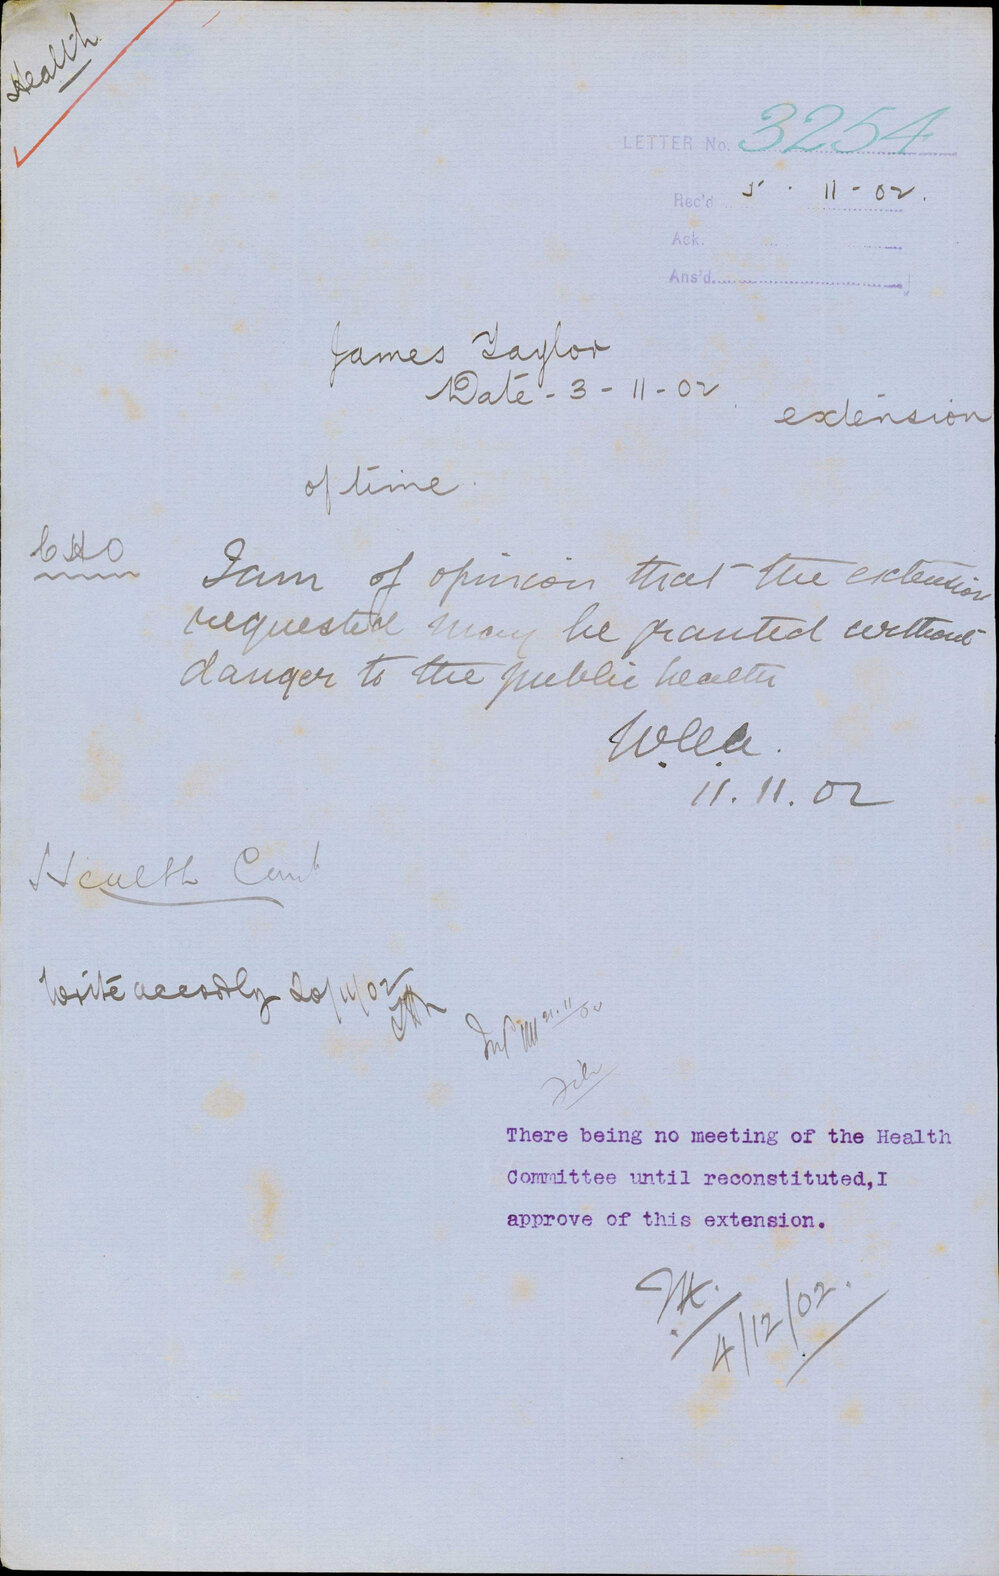 Health
LETTER No. 3254
Rec'd 5 . 11 - 02.
Ack.
Ans'd
James Taylor
Date - 3 - 11 - 02
extension
of time.
CHO
I am of opinion that the extension
requested may be granted without
danger to the public health
11.11.02
Health Comt
Write accordly 20/11/02
21.11/02
File
There being no meeting of the Health
Committee until reconstituted,I
approve of this extension.
4/12/02.